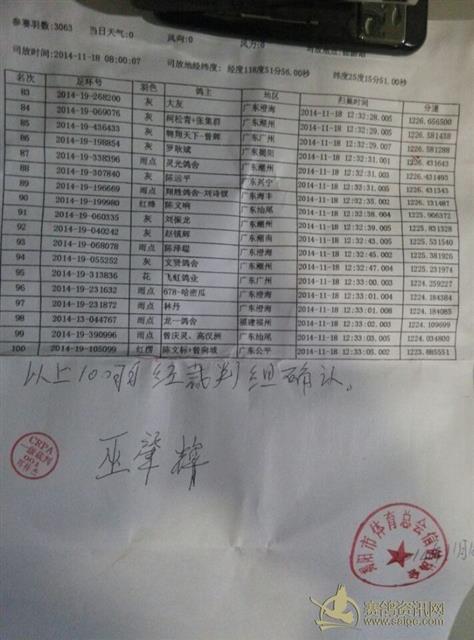 参赛羽数:3063 当日天气:0 风向:0 风力:0
司放时间:2014-11-18 08:00:07 司放地经纬度: 经度118度51分56.00秒 纬度25度15分51.00秒
名次 足环号 羽色 鸽主 地区 归巢时间 分速
83 2014-19-268200 灰 大友 广东澄海 2014-11-18 12:32:28.005 1226.656500
84 2014-19-069076 灰 柯松青+张集群 广东潮州 2014-11-18 12:32:29.005 1226.581438
85 2014-19-436433 灰 翱翔天下-曾辉 广东广州 2014-11-18 12:32:29.005 1226.581288
86 2014-19-198854 灰 罗耿斌 广东揭阳 2014-11-18 12:32:31.001 1226.431643
87 2014-19-338396 雨点 灵光鸽舍 广东潮州 2014-11-18 12:32:31.003 1226.431493
88 2014-19-307840 灰 陈运平 广东兴宁 2014-11-18 12:32:31.005 1226.431343
89 2014-19-196669 雨点 翔胜鸽舍-刘诗钗 广东海丰 2014-11-18 12:32:35.005 1226.131487
90 2014-19-199980 红绛 陈文响 广东汕尾 2014-11-18 12:32:38.004 1225.906372
91 2014-19-060335 灰 刘振龙 广东潮州 2014-11-18 12:32:39.005 1225.831328
92 2014-19-040242 灰 赵镇辉 广东潮南 2014-11-18 12:32:43.005 1225.531540
93 2014-19-068078 雨点 陈泽聪 广东潮州 2014-11-18 12:32:45.002 1225.381926
94 2014-19-055252 灰 文贤鸽舍 广东潮州 2014-11-18 12:32:47.004 1225.231974
95 2014-19-313836 花 飞虹鸽业 广东广州 2014-11-18 12:33:00.003 1224.259227
96 2014-19-231632 雨点 678-哈密瓜 广东澄海 2014-11-18 12:33:01.004 1224.184384
97 2014-19-231872 雨点 林丹 广东澄海 2014-11-18 12:33:01.008 1224.184085
98 2014-13-044767 雨点 龙一鸽舍 福建福州 2014-11-18 12:33:02.004 1224.109699
99 2014-19-390996 雨点 曾庆灵、高汉洲 广东汕尾 2014-11-18 12:33:03.005 1224.034800
100 2014-19-105099 红楞 陈文标+曾向城 广东公平 2014-11-18 12:33:05.002 1223.885551
以上100羽经裁判组确认。
CRPA
一级裁判
001
巫肇辉
揭阳市体育总会信鸽协会
赛鸽资讯网
www.saige.com